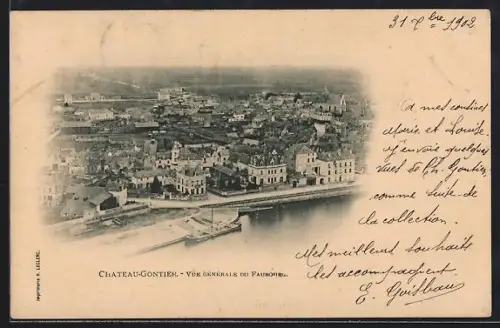 31 Xbre 1902
A mes cousines
Marie et Louise
j'envoie quelques
vues de Ch. Gontier
comme suite de
la collection.
Mes meilleurs souhaits
les accompagnent
E.
CHATEAU-GONTIER. - VUE GÉNÉRALE DU FAUBOURG.
Imprimerie H. LECLERC.